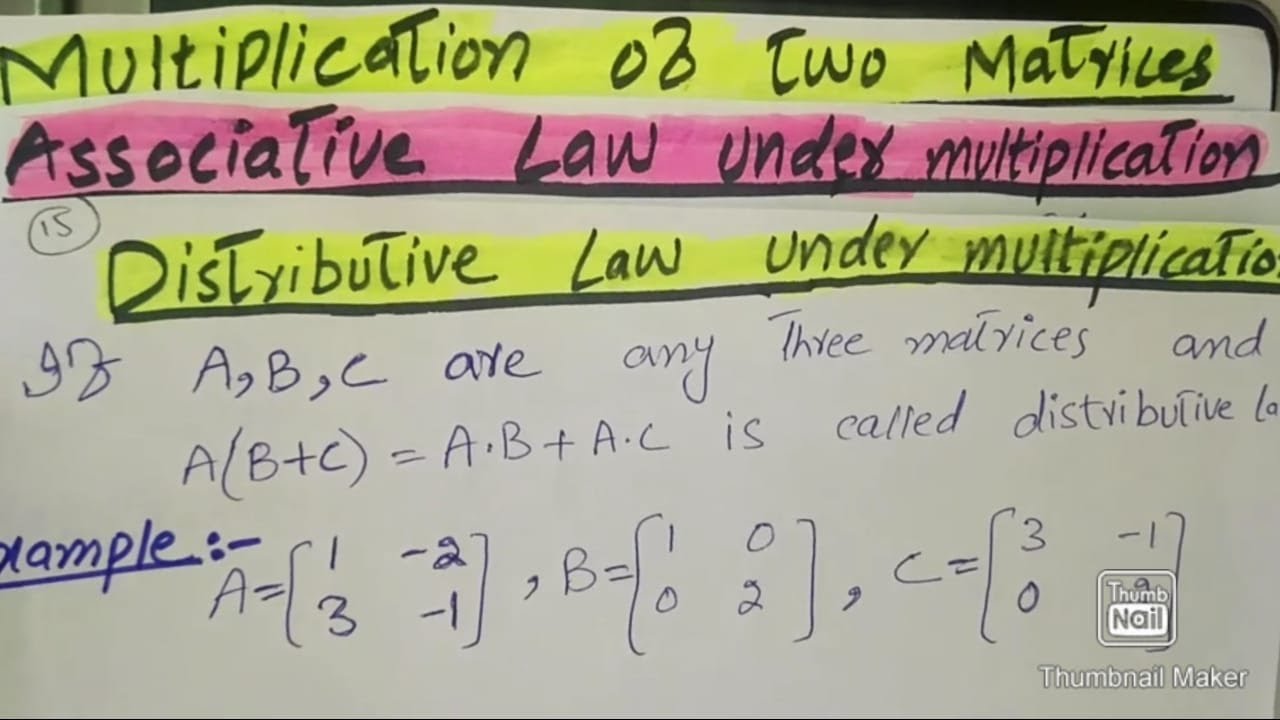 Multiplication of Two Matrices
Associative Law under multiplication
15
Distributive Law under multiplicatio
If A, B, C are any Three matrices and
A(B+C) = A·B + A·C is called distributive
xample:-
A = [1 -2
3 -1], B = [1 0
0 2], C = [3 -1
0 ]
Thumb
Nail
Thumbnail Maker